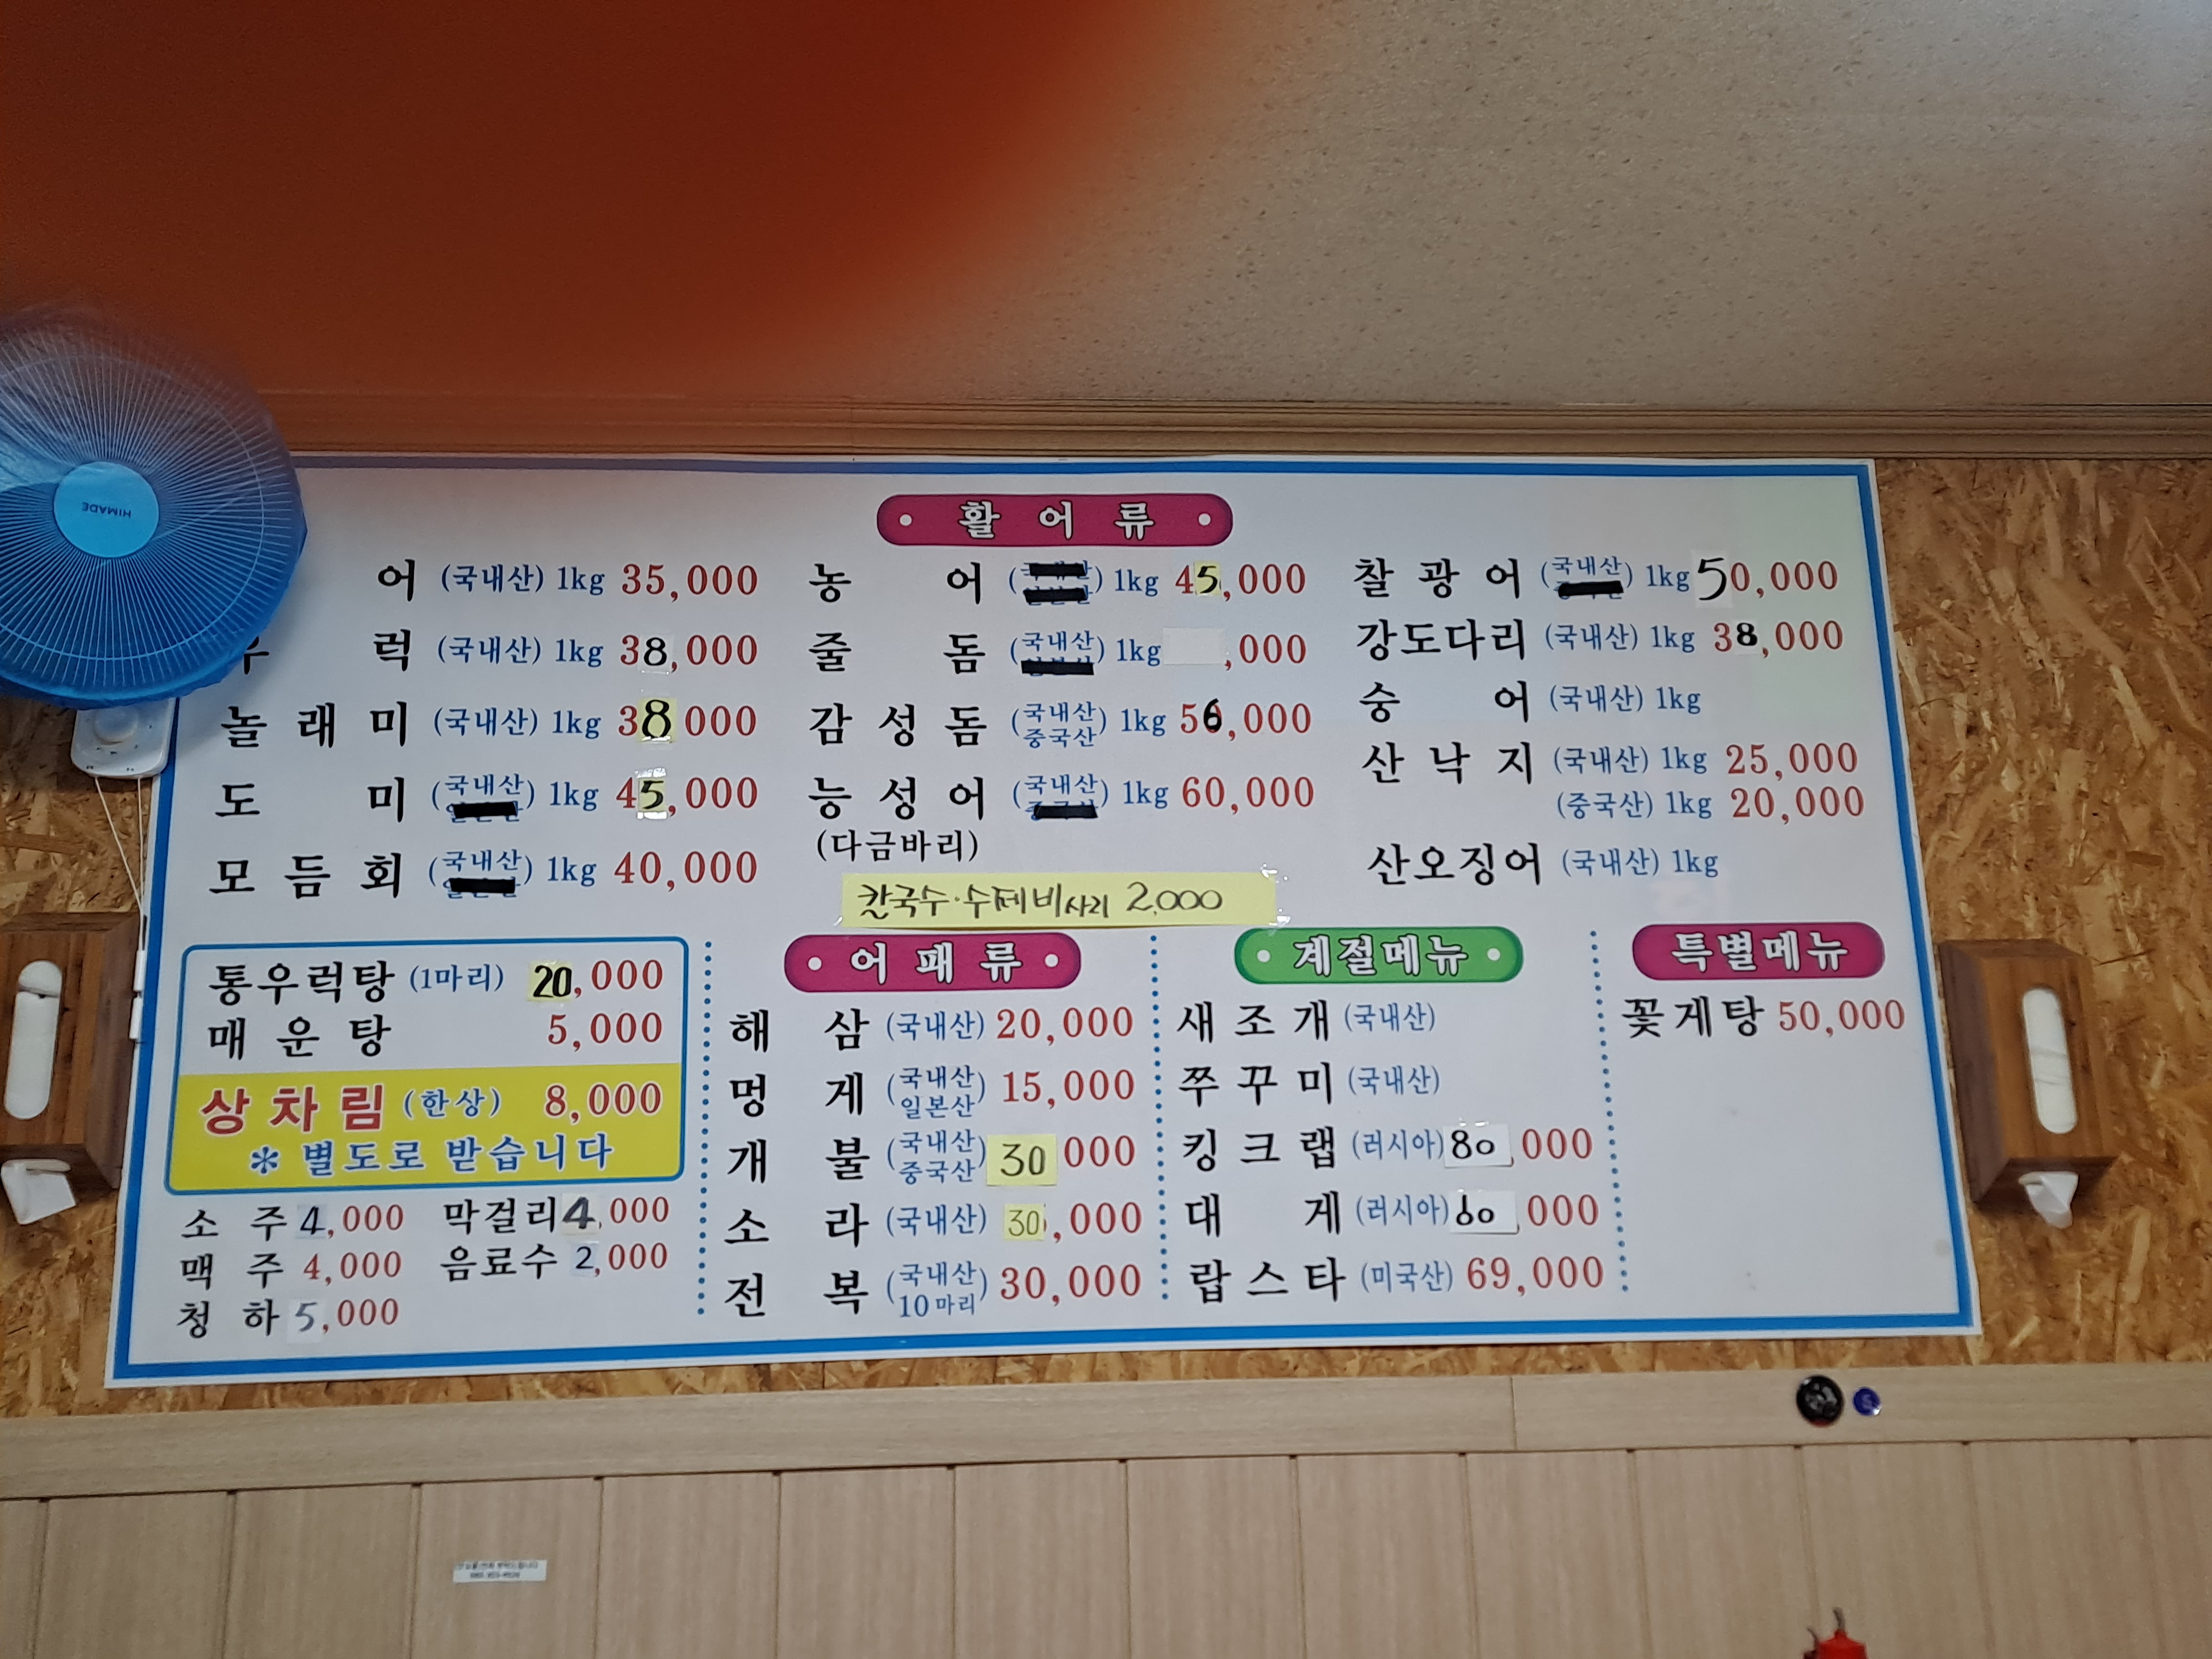 HIMADE
활어류
어 (국내산) 1kg 35,000
럭 (국내산) 1kg 38,000
놀래미 (국내산) 1kg 38 000
도미 (국내산) 1kg 45,000
모듬회 (국내산) 1kg 40,000
농어 1kg 45,000
줄돔 (국내산) 1kg ,000
감성돔 (국내산 중국산) 1kg 56,000
능성어 (국내산) 1kg 60,000
(다금바리)
찰광어 (국내산) 1kg 50,000
강도다리 (국내산) 1kg 38,000
숭어 (국내산) 1kg
산낙지 (국내산) 1kg 25,000
(중국산) 1kg 20,000
산오징어 (국내산) 1kg
칼국수·수제비사리 2,000
통우럭탕 (1마리) 20,000
매운탕 5,000
상차림 (한상) 8,000
* 별도로 받습니다
소주 4,000 막걸리 4,000
맥주 4,000 음료수 2,000
청하 5,000
어패류
해삼 (국내산) 20,000
멍게 (국내산 일본산) 15,000
개불 (국내산 중국산) 30 000
소라 (국내산) 30,000
전복 (국내산 10마리) 30,000
계절메뉴
새조개 (국내산)
쭈꾸미 (국내산)
킹크랩 (러시아) 80,000
대게 (러시아) 60,000
랍스타 (미국산) 69,000
특별메뉴
꽃게탕 50,000